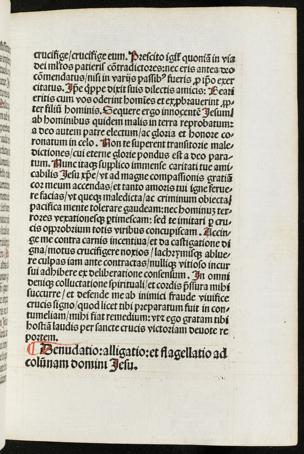 crucifige/crucifige eum. Prescito igit̃ quoniã in via
dei ml̃tos patieris cõtradictores: nec eris antea deo
cõmendatus/nisi in varijs passib⁹ fueris p ip̃o exer
citatus. Ip̃e q̃ppe dixit suis dilectis amicis: Beati
eritis cum vos oderint homĩes et exprobrauerint pp̃
ter filiũ hominis. Sequere ergo innocentẽ Jesum
ab hominibus quidem malis in terra reprobatum:
a deo autem patre electum/ac gloria et honore co
ronatum in celo. Non te superent transitorie male
dictiones/cui eterne glorie pondus est a deo para-
tum. Nunc itaq supplico immense caritati tue ami
cabilis Jesu xp̃e/vt ad magne compassionis gratiã
cor meum accendas/et tanto amoris tui igne ferue
re facias/vt queq maledicta/ac criminum obiecta
pacifica mente tolerare gaudeam: nec hominũ ter
rores vexationesq ptimescam: sed te imitari p cru
cis opprobrium totis viribus concupiscam. Accin
ge me contra carnis incentiua/et da castigatione di
gna/motus crucifigere noxios/lachrymisq ablue
re culpas iam ante contractas/nulliq vitioso incur
sui adhibere ex deliberatione consensum. In omni
deniq colluctatione spirituali/et cordis pssura mihi
succurre/et defende me ab inimici fraude viuifice
crucis signo/quod licet tibi preparatum fuit in con
tumeliam/mihi fiat remedium: vt ego gratam tibi
hostiã laudis per sancte crucis victoriam deuote re
portem.
Denudatio: alligatio: et flagellatio ad
colũnam domini Jesu.